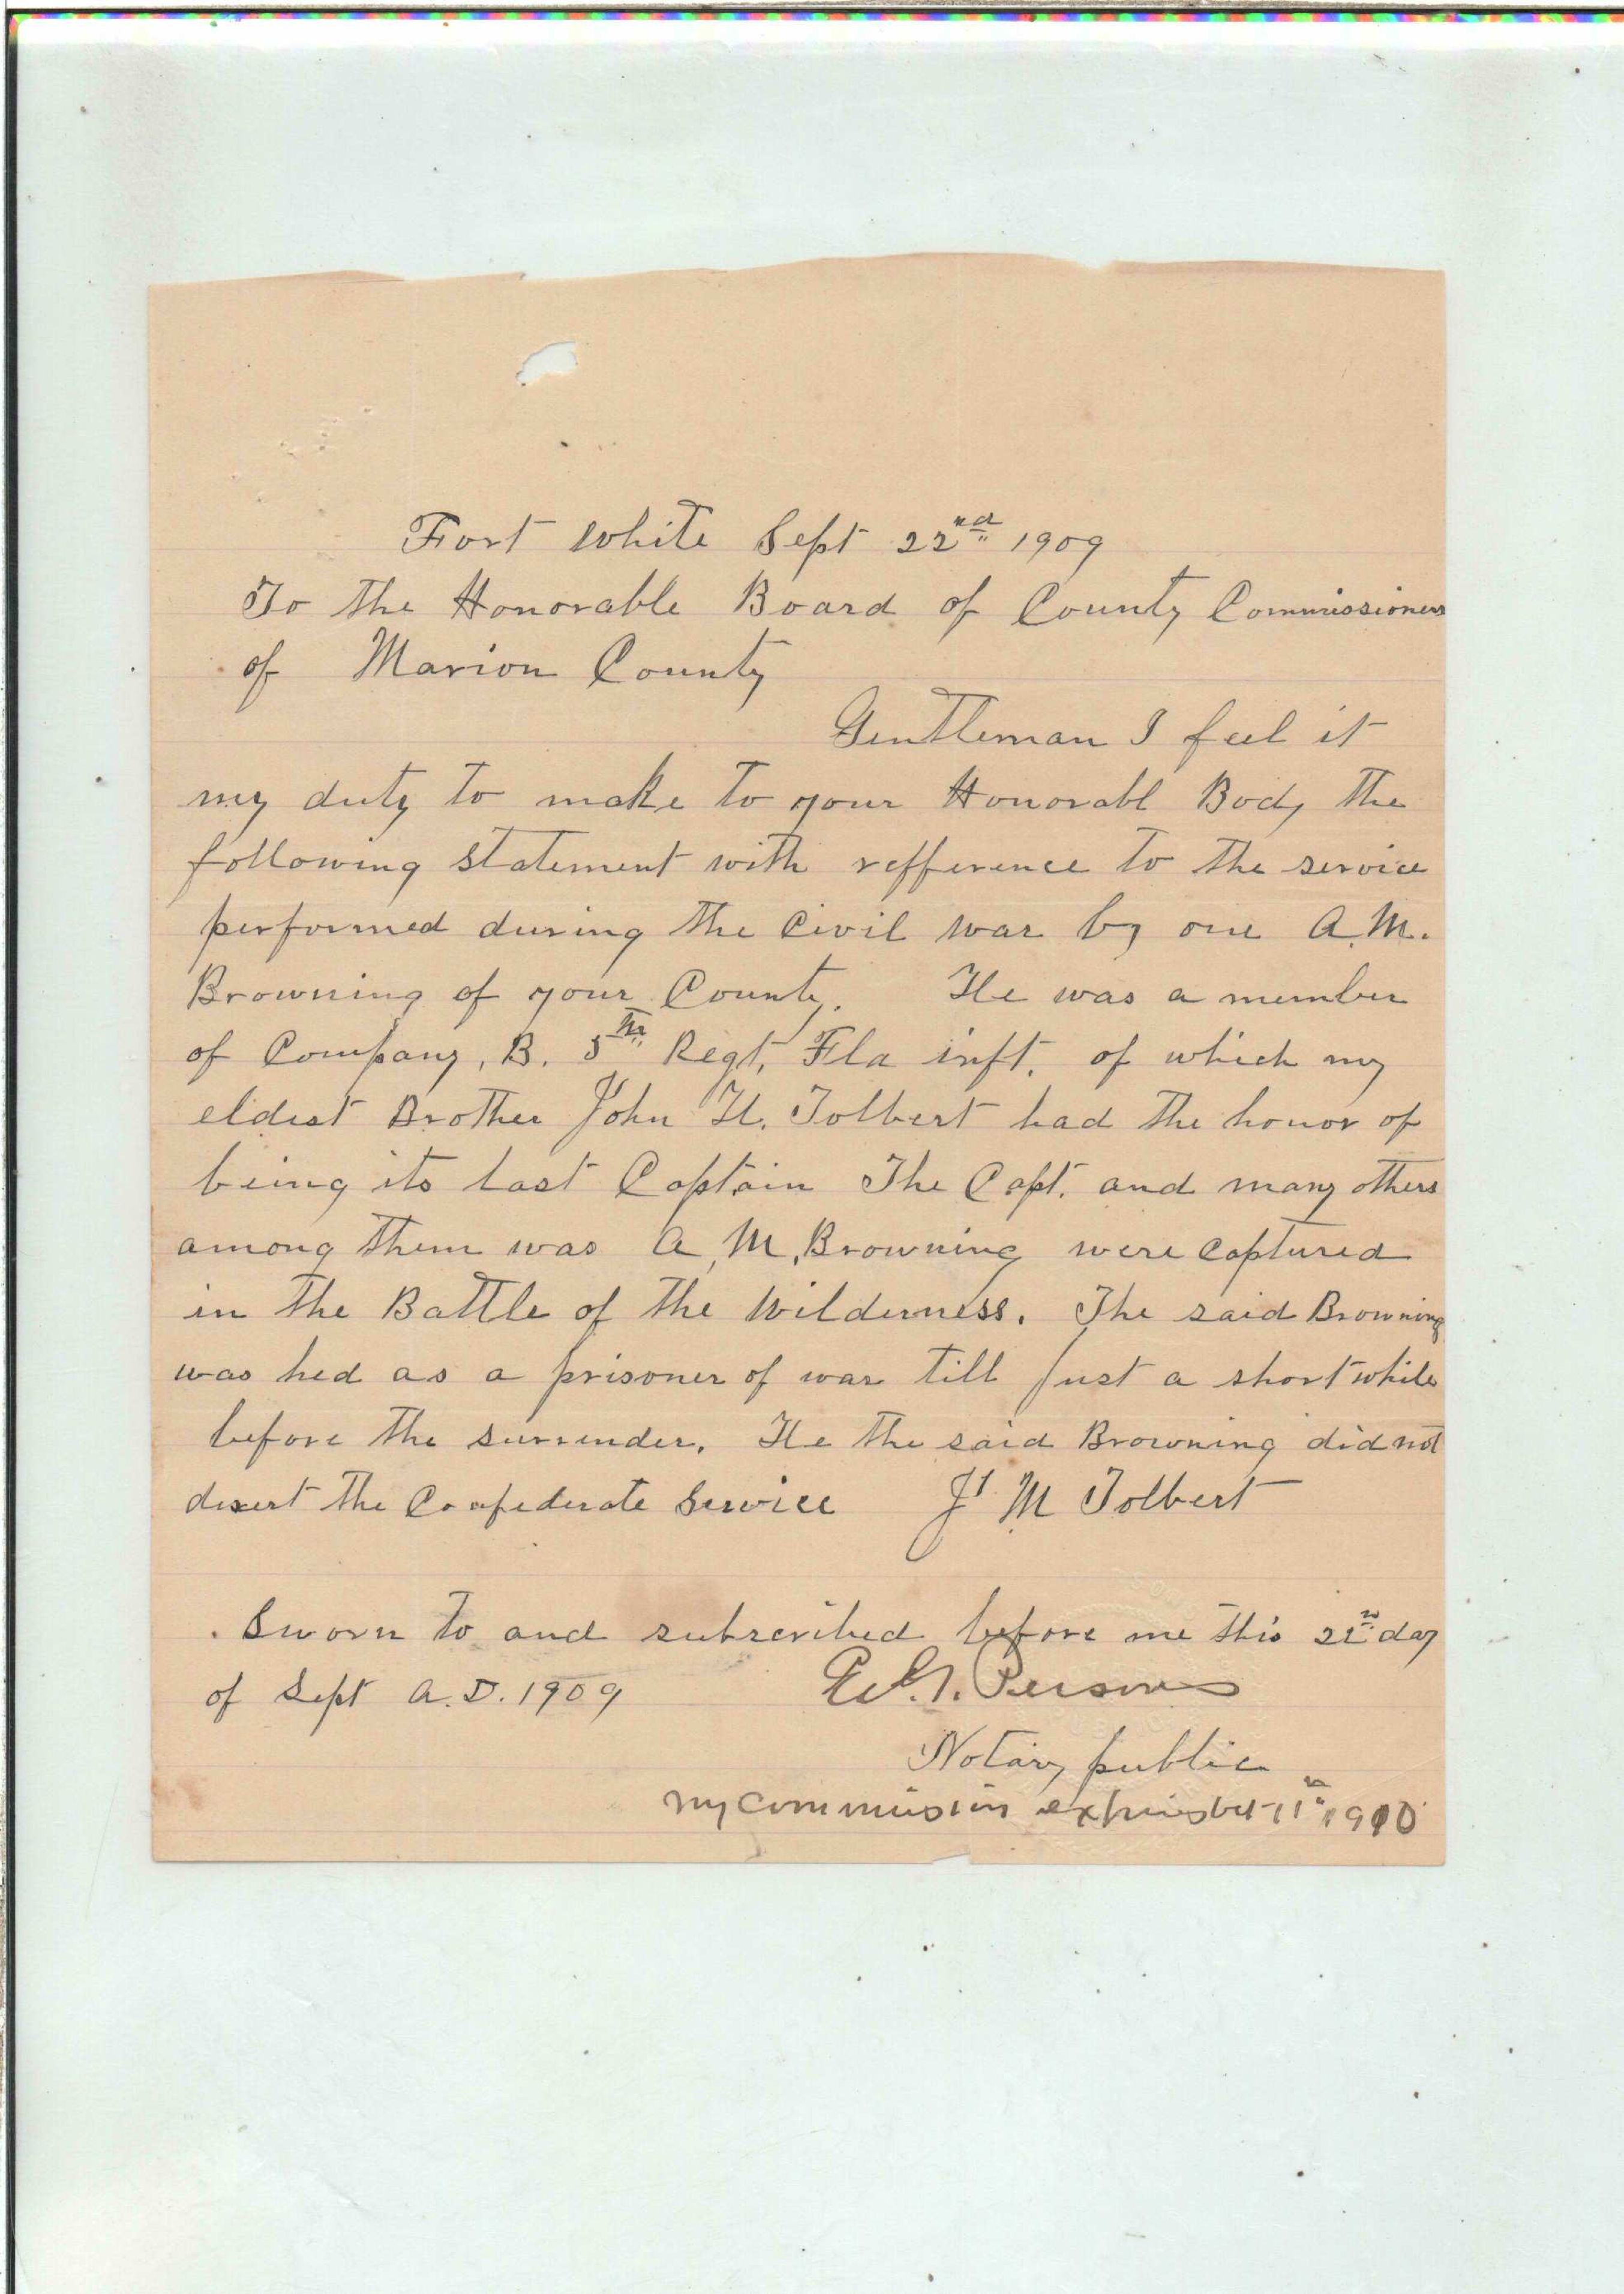 Fort White Sept 22nd 1909
To the Honorable Board of County Commissioners
of Marion County
Gentleman I feel it
my duty to make to your Honorabl Body the
following statement with refference to the service
performed during the Civil war by one A.M.
Browning of your County. He was a member
of Company, B. 5th Regt, Fla inft. of which my
eldest Brother John H. Tolbert had the honor of
being its last Captain The Capt. and many others
among them was A, M, Browning were captured
in the Battle of the Wilderness. The said Browning
was hed as a prisoner of war till Just a short while
before the surrender. He the said Browning did not
desert the Confederate Service J M Tolbert
Sworn to and subscribed before me this 22n day
of Sept A.D. 1909 Persons
Notary public
my commission expires 11 1910